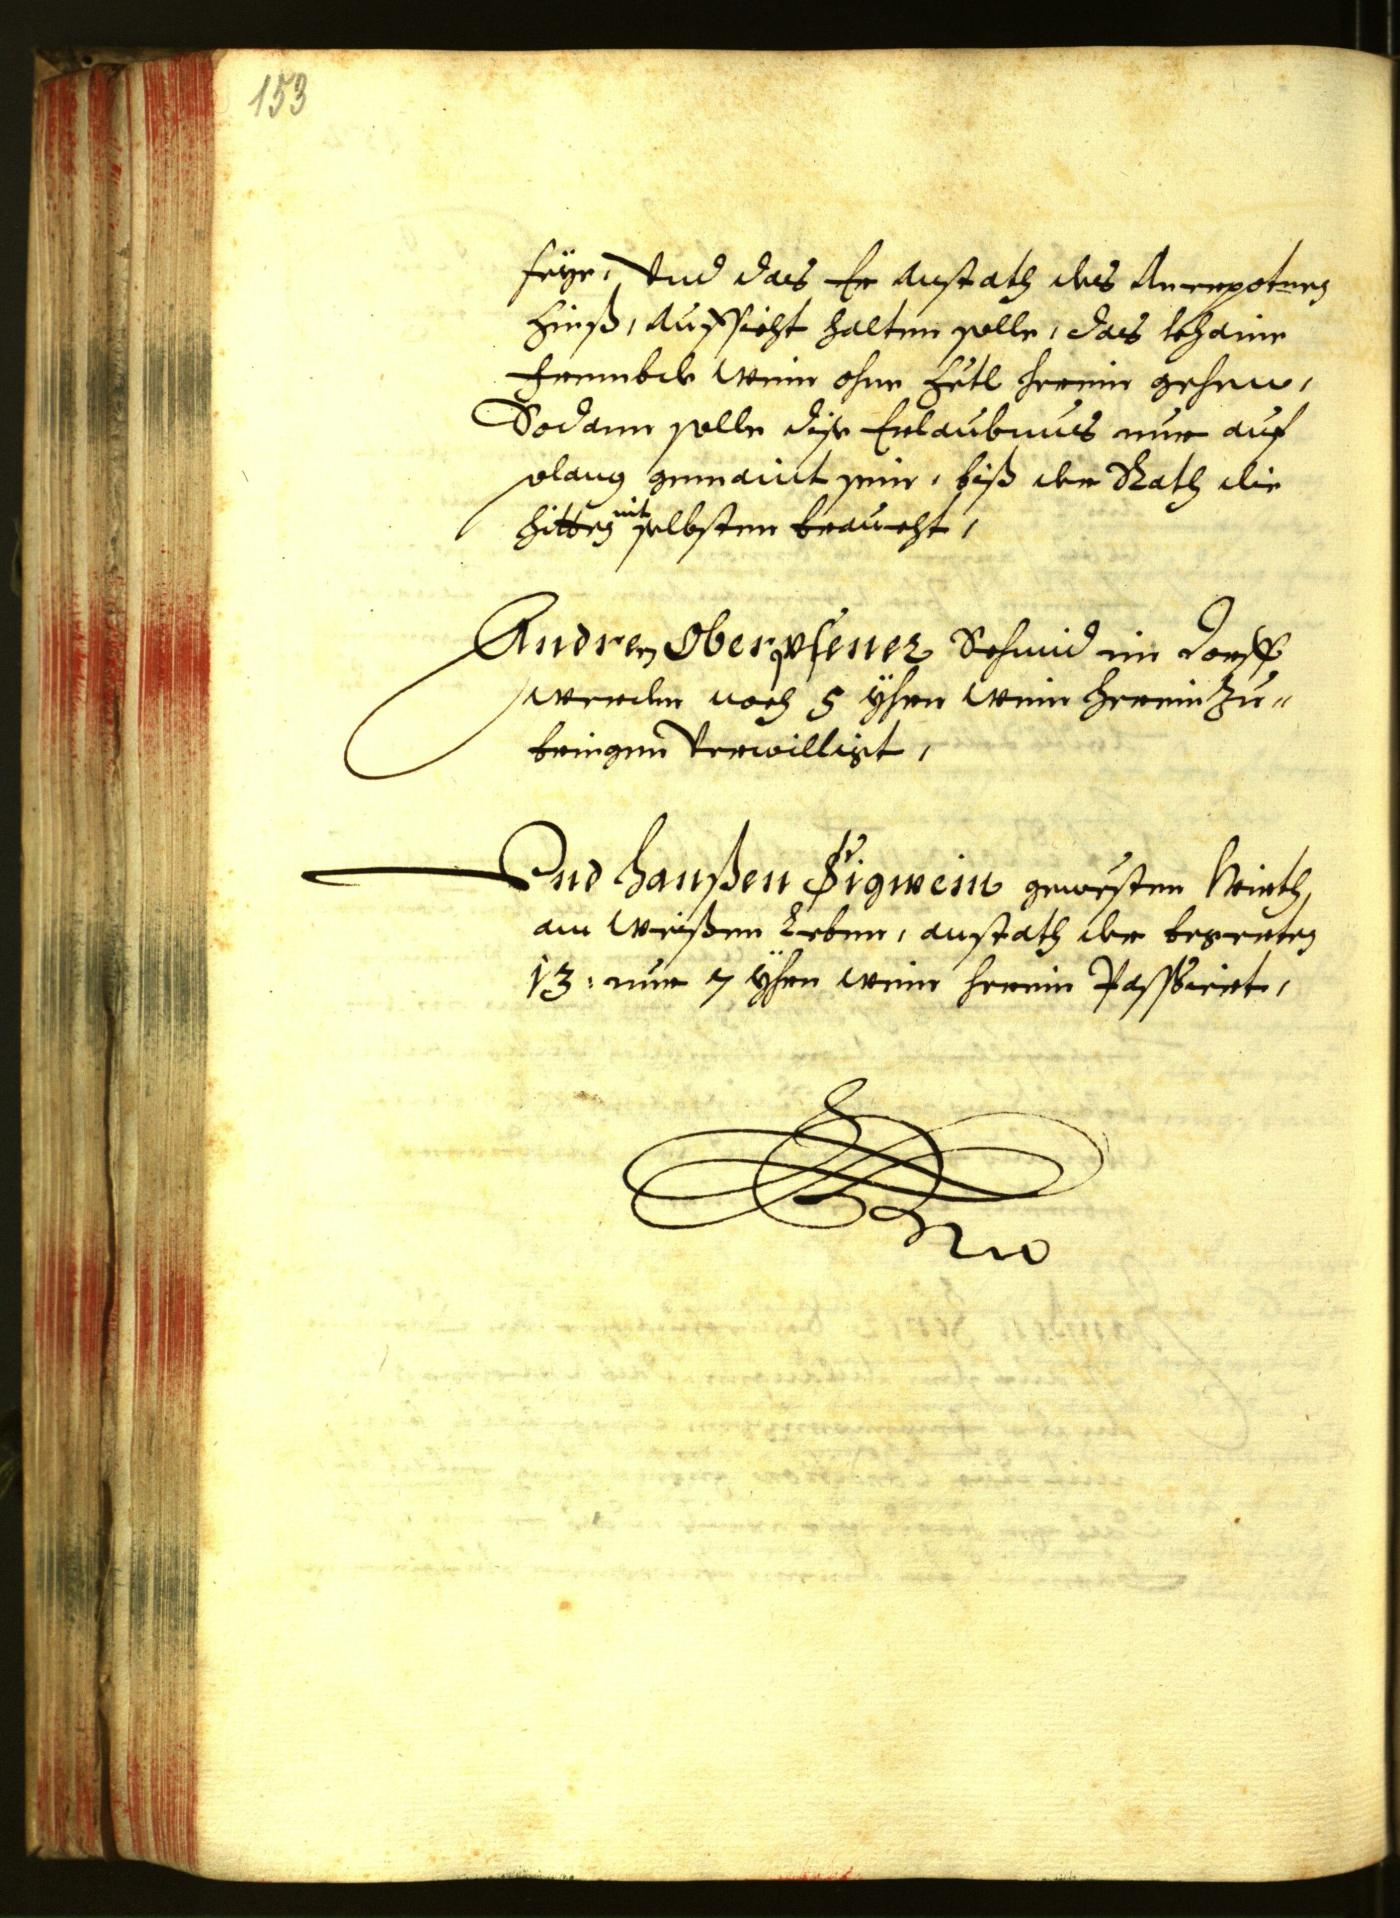 153
seye, Vnd das Er anstath des Anerpotnen
Zinß, Aufsicht halten solle, das khaine
frembde Wein ohne Zetl herein gehen,
Sodann solle dise Erlaubnus nur auf
solang gemaint sein, biß der Rath die
hitten nit selbsten braucht,
Andreen Schmid im Dorff
werden noch 5 Yhren Wein herein zu-
bringen Verwilligt,
Vnd Hanßen Sigwein gewesten Wirth
am Weißen, anstath der begerten
13: nur 7 Yhren Wein herein Passiert,